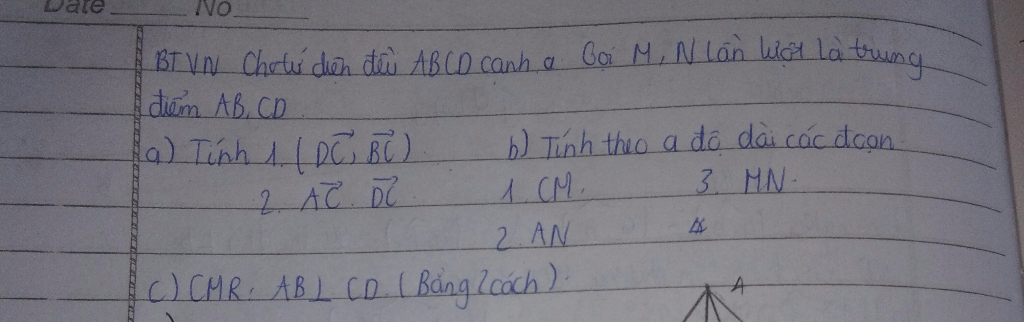 Date No
BTVN Cho tứ diện đều ABCD cạnh a. Gọi M, N lần lượt là trung
điểm AB, CD
a) Tính 1. (DC→, BC→). b) Tính theo a độ dài các đoạn
2. AC→. DC→ 1. CM. 3. MN.
2. AN 4
c) CMR. AB⊥ CD. (Bằng 2 cách).
A